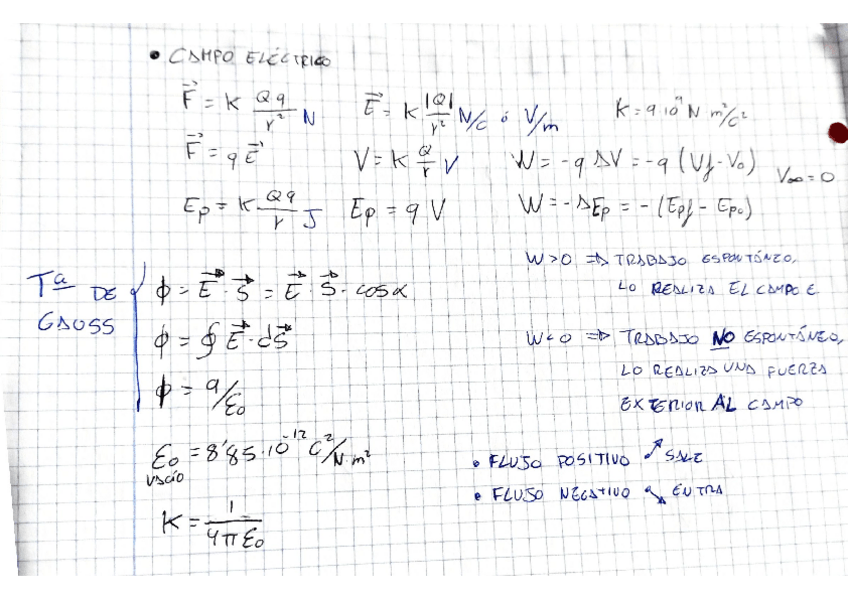 • CAMPO ELÉCTRICO
F⃗ = K Qq/r² N    E⃗ = K |Q|/r² N/C ó V/m    K = 9·10⁹ N m²/C²
F⃗ = q E⃗    V = K Q/r V    W = -q ΔV = -q (Vf - V₀)    V∞ = 0
Ep = K Qq/r J    Ep = q V    W = -ΔEp = - (Epf - Ep₀)
W > 0 ⇒ TRABAJO ESPONTÁNEO,
LO REALIZA EL CAMPO E
Tª DE GAUSS
ϕ = E⃗ · S⃗ = E⃗ · S⃗ · cos α
ϕ = ∮ E⃗ · dS⃗
ϕ = q/ε₀
W < 0 ⇒ TRABAJO NO ESPONTÁNEO,
LO REALIZA UNA FUERZA
EXTERIOR AL CAMPO
ε₀ = 8'85·10⁻¹² C²/N·m²
VACÍO
K = 1/4πε₀
• FLUJO POSITIVO ↗ SALE
• FLUJO NEGATIVO ↘ ENTRA